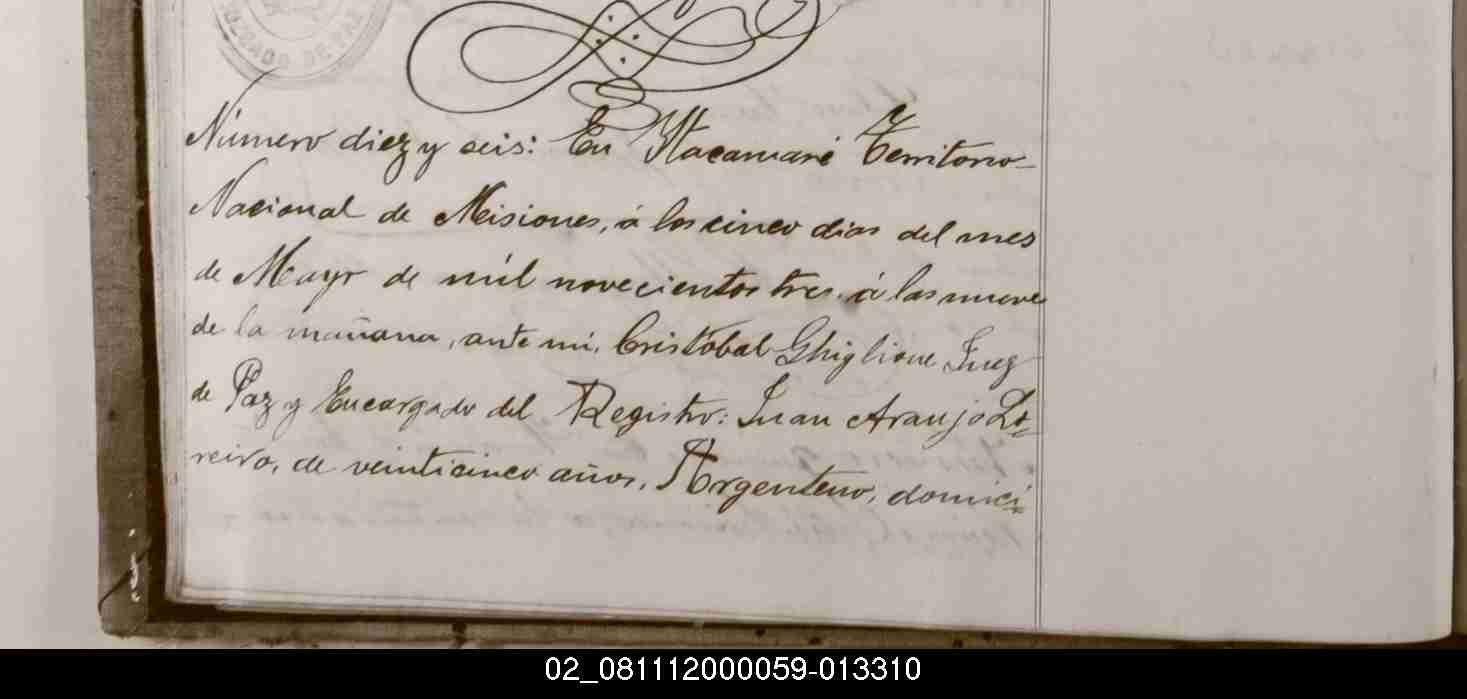 JUZGADO DE PAZ
Número diez y seis: En Ytacaruaré Territorio
Nacional de Misiones, á los cinco dias del mes
de Mayo de mil novecientos tres, á las nueve
de la mañana, ante mi, Cristobal Ghiglione Juez
de Paz y Encargado del Registro: Juan Araujo Lo-
reiro, de veinticinco años, Argentino, domici-
02_081112000059-013310